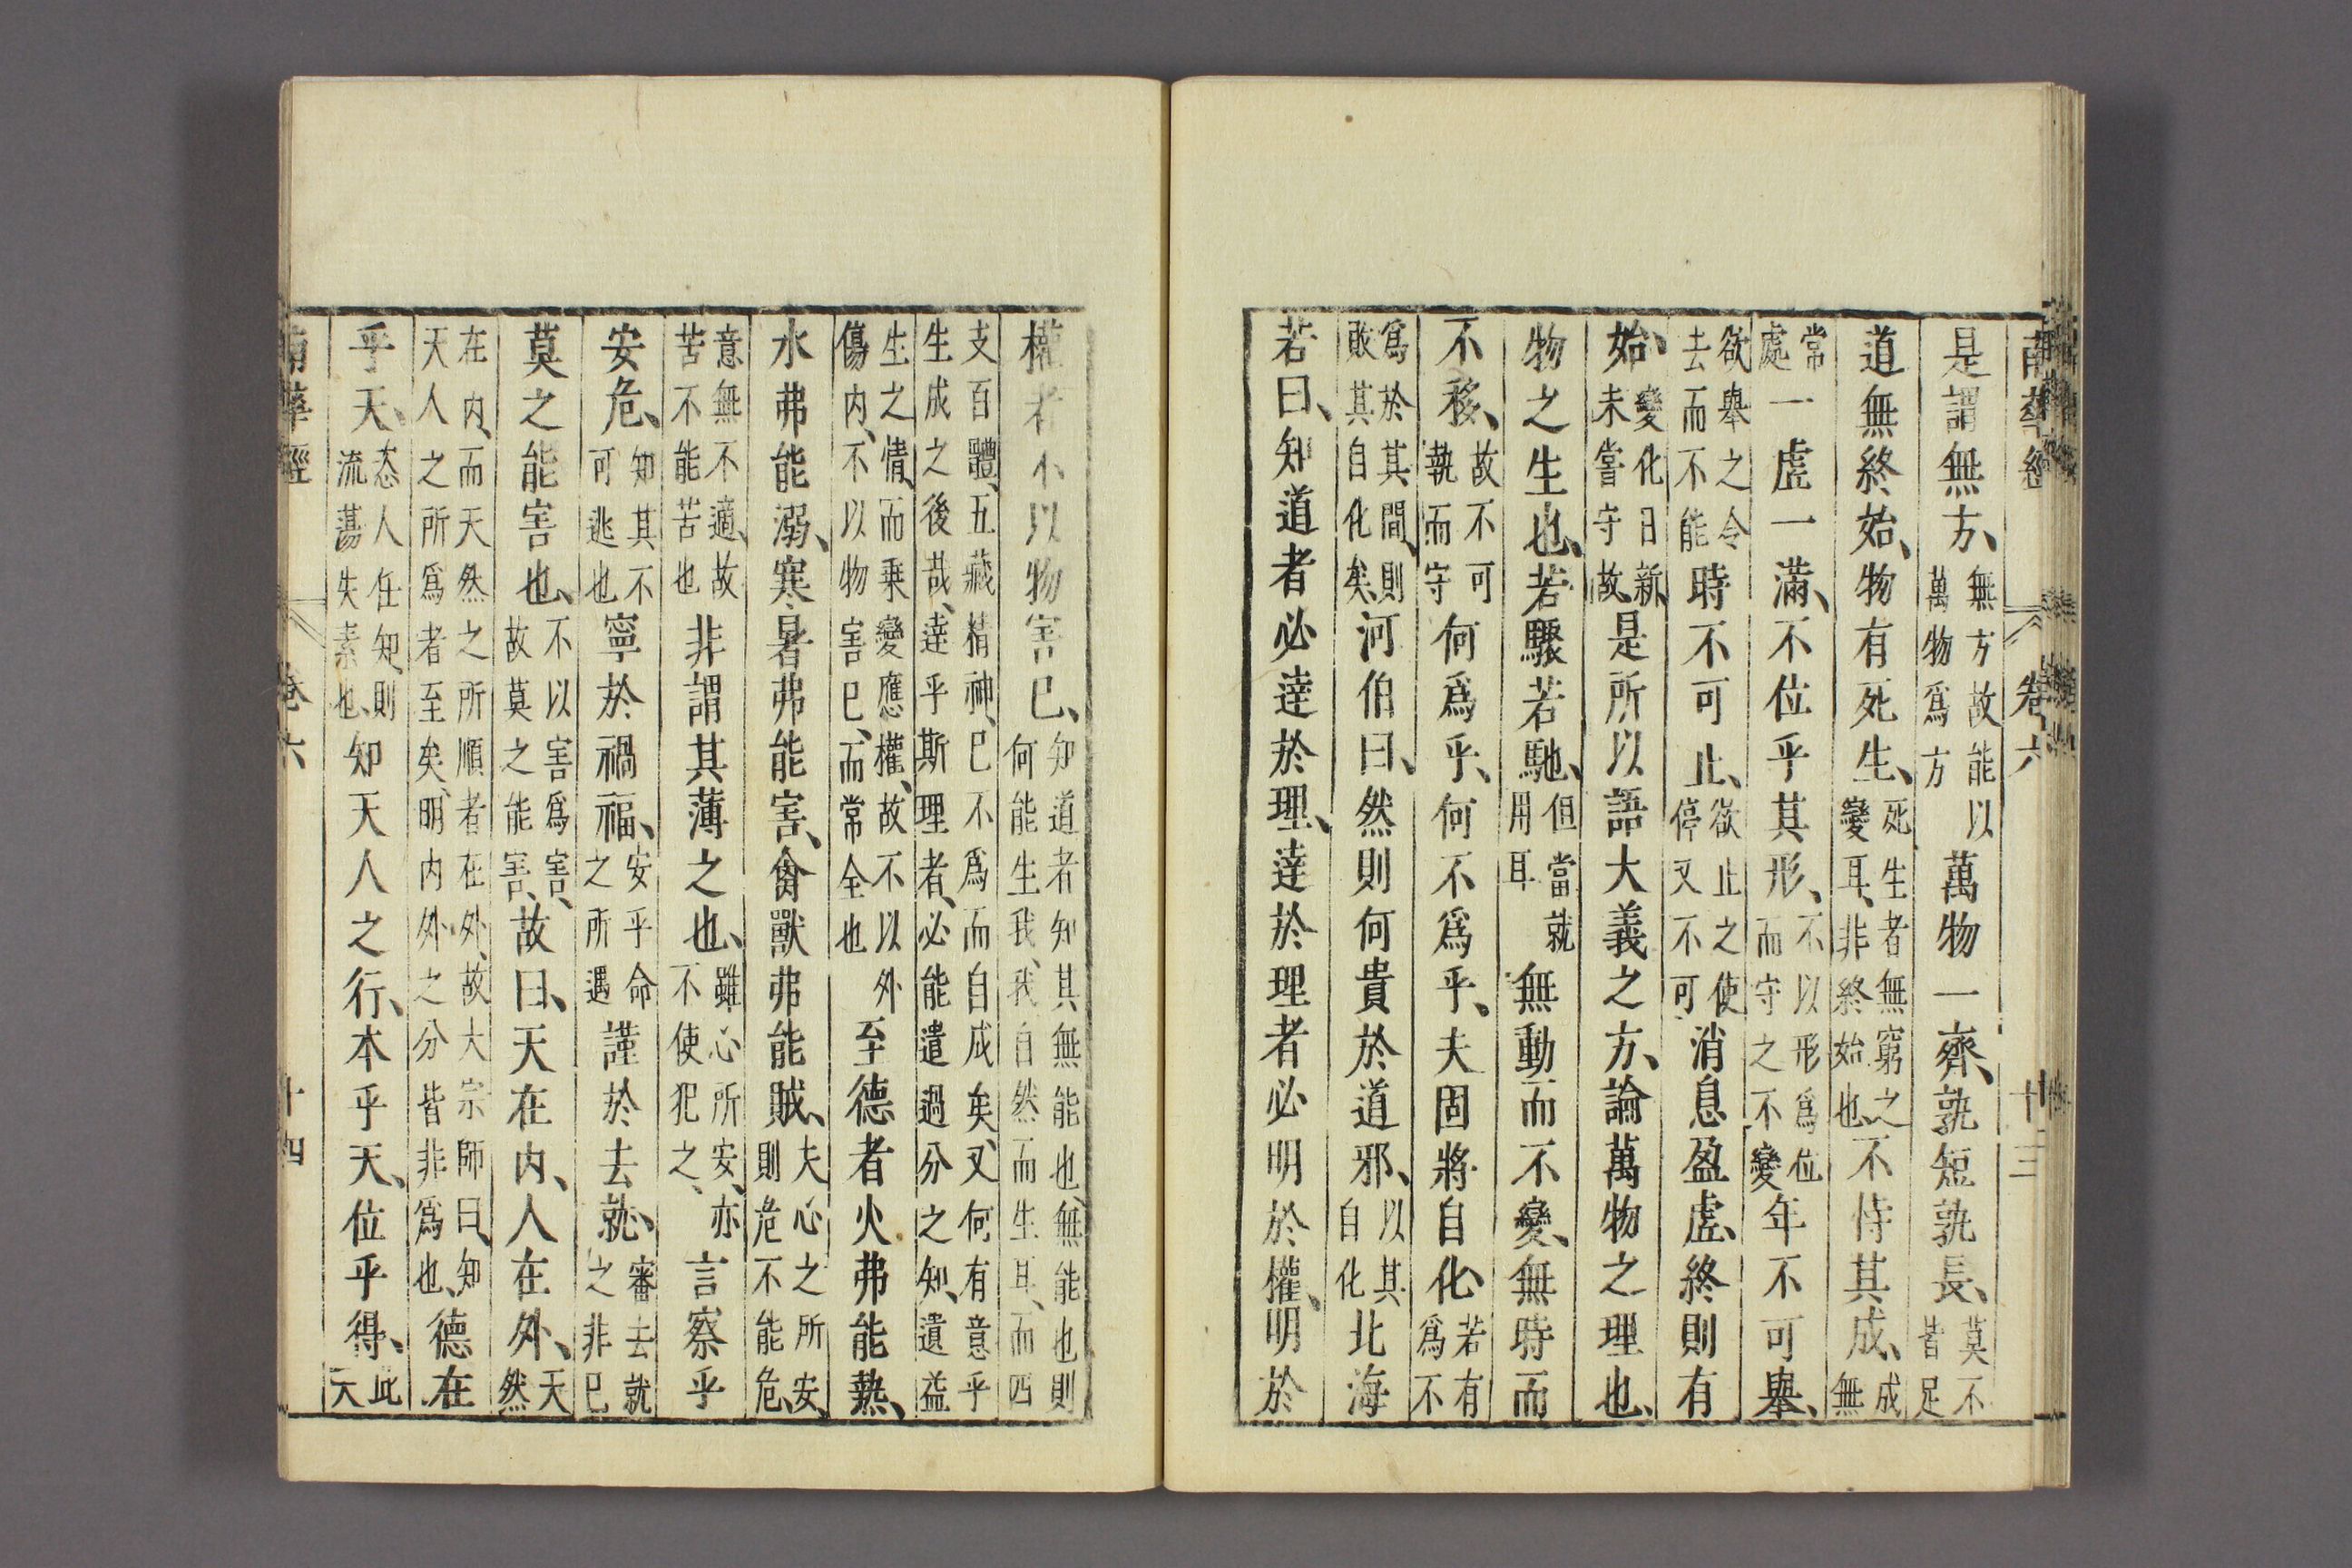 南華經 卷六 十三
是謂無方、無方故能以萬物爲方萬物一齊、孰短孰長、莫不皆足
道無終始、物有死生、死生者無窮之變耳、非終始也不恃其成、成無
常處一虛一滿、不位乎其形、不以形爲位而守之不變年不可舉、
欲舉之令去而不能時不可止、欲止之使停又不可消息盈虛、終則有
始、變化日新、未嘗守故、是所以語大義之方、論萬物之理也、
物之生也、若驟若馳、但當就用耳無動而不變、無時而
不移、故不可執而守何爲乎、何不爲乎、夫固將自化、若有爲不
爲於其間、則敗其自化矣、河伯曰、然則何貴於道邪、以其自化北海
若曰、知道者必達於理、達於理者必明於權、明於
權者不以物害已、知道者知其無能也、無能也則何能生我、我自然而生耳、而四
支百體、五藏精神、已不爲而自成矣、又何有意乎生成之後哉、達乎斯理者、必能遣過分之知、遺益
生之情、而乘變應權、故不以外傷內、不以物害已、而常全也至德者火弗能熱、
水弗能溺、寒暑弗能害、禽獸弗能賊、夫心之所安、則危不能危、
意無不適、故苦不能苦也非謂其薄之也、雖心所安、亦不使犯之、言察乎
安危、知其不可逃也寧於禍福、安乎命之所遇謹於去就、審去就之非已
莫之能害也、不以害爲害、故莫之能害、故曰、天在內、人在外、天然
在內、而天然之所順者在外、故大宗師曰、知天人之所爲者至矣、明內外之分皆非爲也、德在
乎天、恣人任知、則流蕩失素也、知天人之行、本乎天、位乎得、此天
南華經 卷六 十四